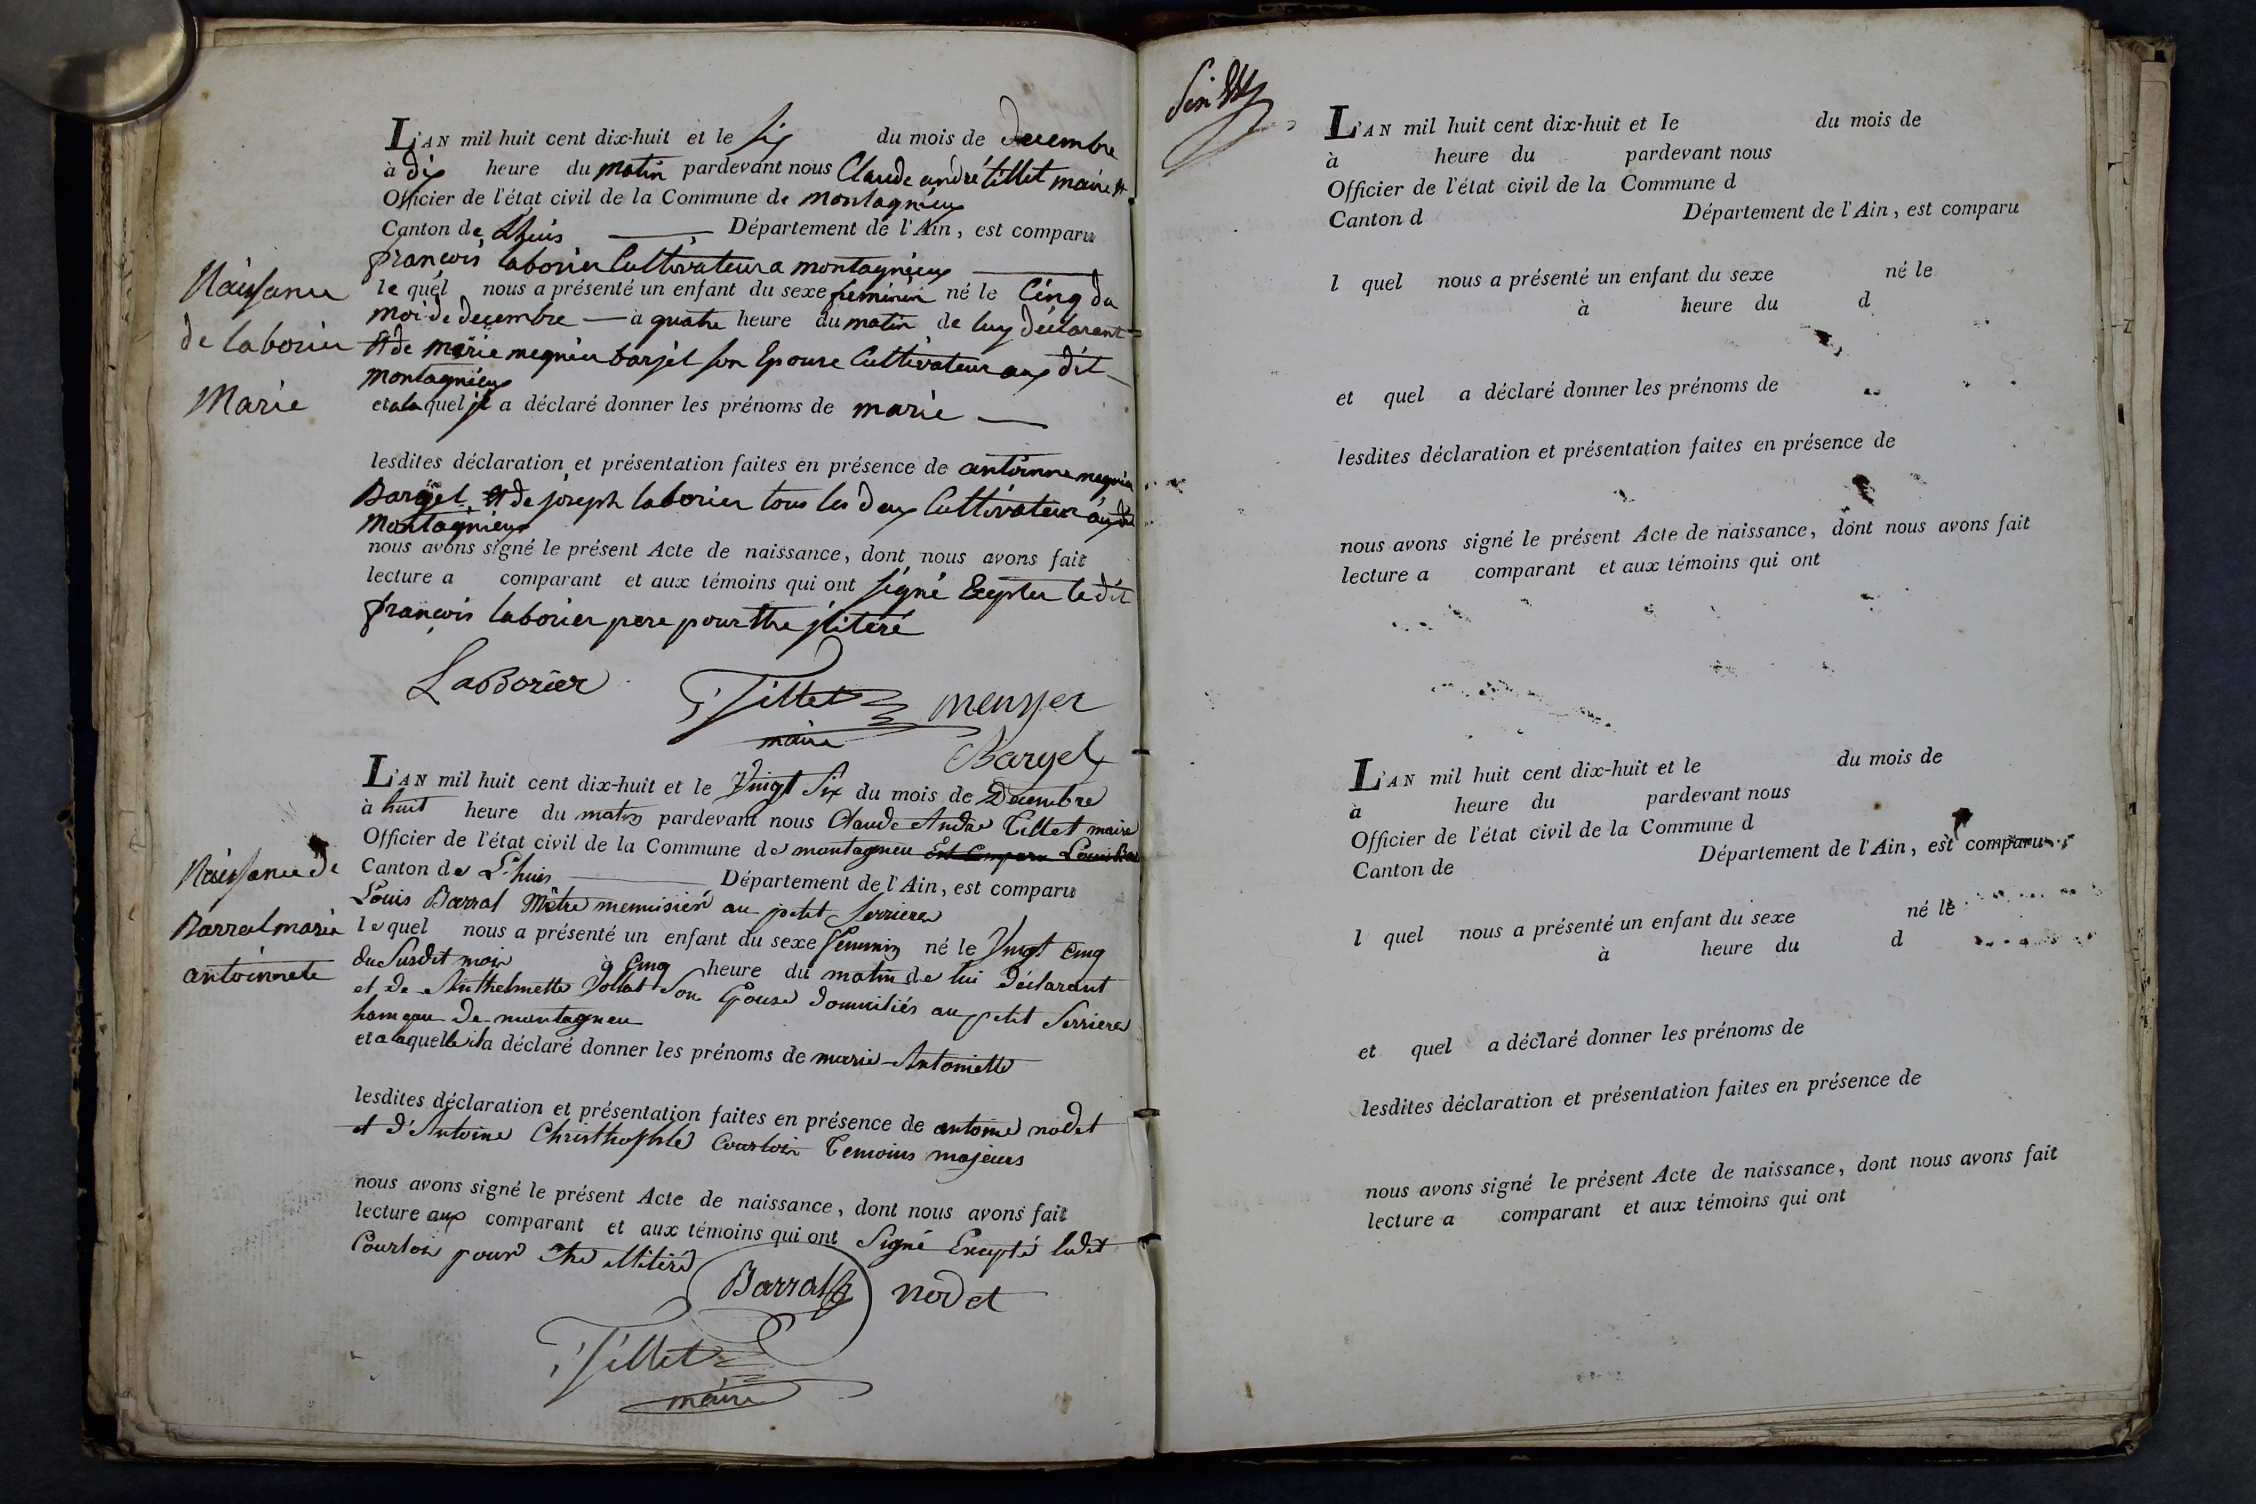 L'AN mil huit cent dix-huit et le six du mois de decembre
à dix heure du matin pardevant nous Claude andré tillet maire et
Officier de l'état civil de la Commune de montagnieux
Canton de Lhuis Département de l'Ain, est comparu
françois laborier Cultivateur a montagnieux
Naissance
de laborier
Marie
le quel nous a présenté un enfant du sexe feminin né le Cinq du
moi de decembre à quatre heure du matin de luy déclarent
et de marie megnier barjel son Epouse Cultivateur aux dit
montagnieux
et a la quel il a déclaré donner les prénoms de marie
lesdites déclaration et présentation faites en présence de antoinne megnier
Bargel et de joseph laborier tous les deux Cultivateur aux dit
montagnieux
nous avons signé le présent Acte de naissance, dont nous avons fait
lecture a comparant et aux témoins qui ont signé Exepter le dit
françois laborier pere pour ttre jliteré
LaBorier Tillet menyer
maire Bargel
L'AN mil huit cent dix-huit et le Vingt Six du mois de Décembre
à huit heure du matin pardevant nous Claude Andre Tillet maire
Officier de l'état civil de la Commune de montagneu Est Comparu Louis Bar
Canton de L'huis Département de l'Ain, est comparu
Louis Barral Mètre menuisier au petit Serriere
Naissance de
Barral maria
antoinnete
le quel nous a présenté un enfant du sexe féminin né le Vingt Cinq
du Susdit mois à Cinq heure du matin de lui Déclarant
et de Anthelmette Vollat Son Epouse domiciliés au petit Serriere
hameau de montagneu
et a laquelle il a déclaré donner les prénoms de marie Antoinette
lesdites déclaration et présentation faites en présence de antoine nodet
et d'Antoine Christhophle Courtois Temoins majeurs
nous avons signé le présent Acte de naissance, dont nous avons fait
lecture aux comparant et aux témoins qui ont Signé Excepté ledit
Courtois pour Etre illitéré
Barral nodet
Tillet
maire
L'AN mil huit cent dix-huit et le du mois de
à heure du pardevant nous
Officier de l'état civil de la Commune d
Canton d Département de l'Ain, est comparu
l quel nous a présenté un enfant du sexe né le
à heure du d
et quel a déclaré donner les prénoms de
lesdites déclaration et présentation faites en présence de
nous avons signé le présent Acte de naissance, dont nous avons fait
lecture a comparant et aux témoins qui ont
L'AN mil huit cent dix-huit et le du mois de
à heure du pardevant nous
Officier de l'état civil de la Commune d
Canton de Département de l'Ain, est comparu
l quel nous a présenté un enfant du sexe né le
à heure du d
et quel a déclaré donner les prénoms de
lesdites déclaration et présentation faites en présence de
nous avons signé le présent Acte de naissance, dont nous avons fait
lecture a comparant et aux témoins qui ont